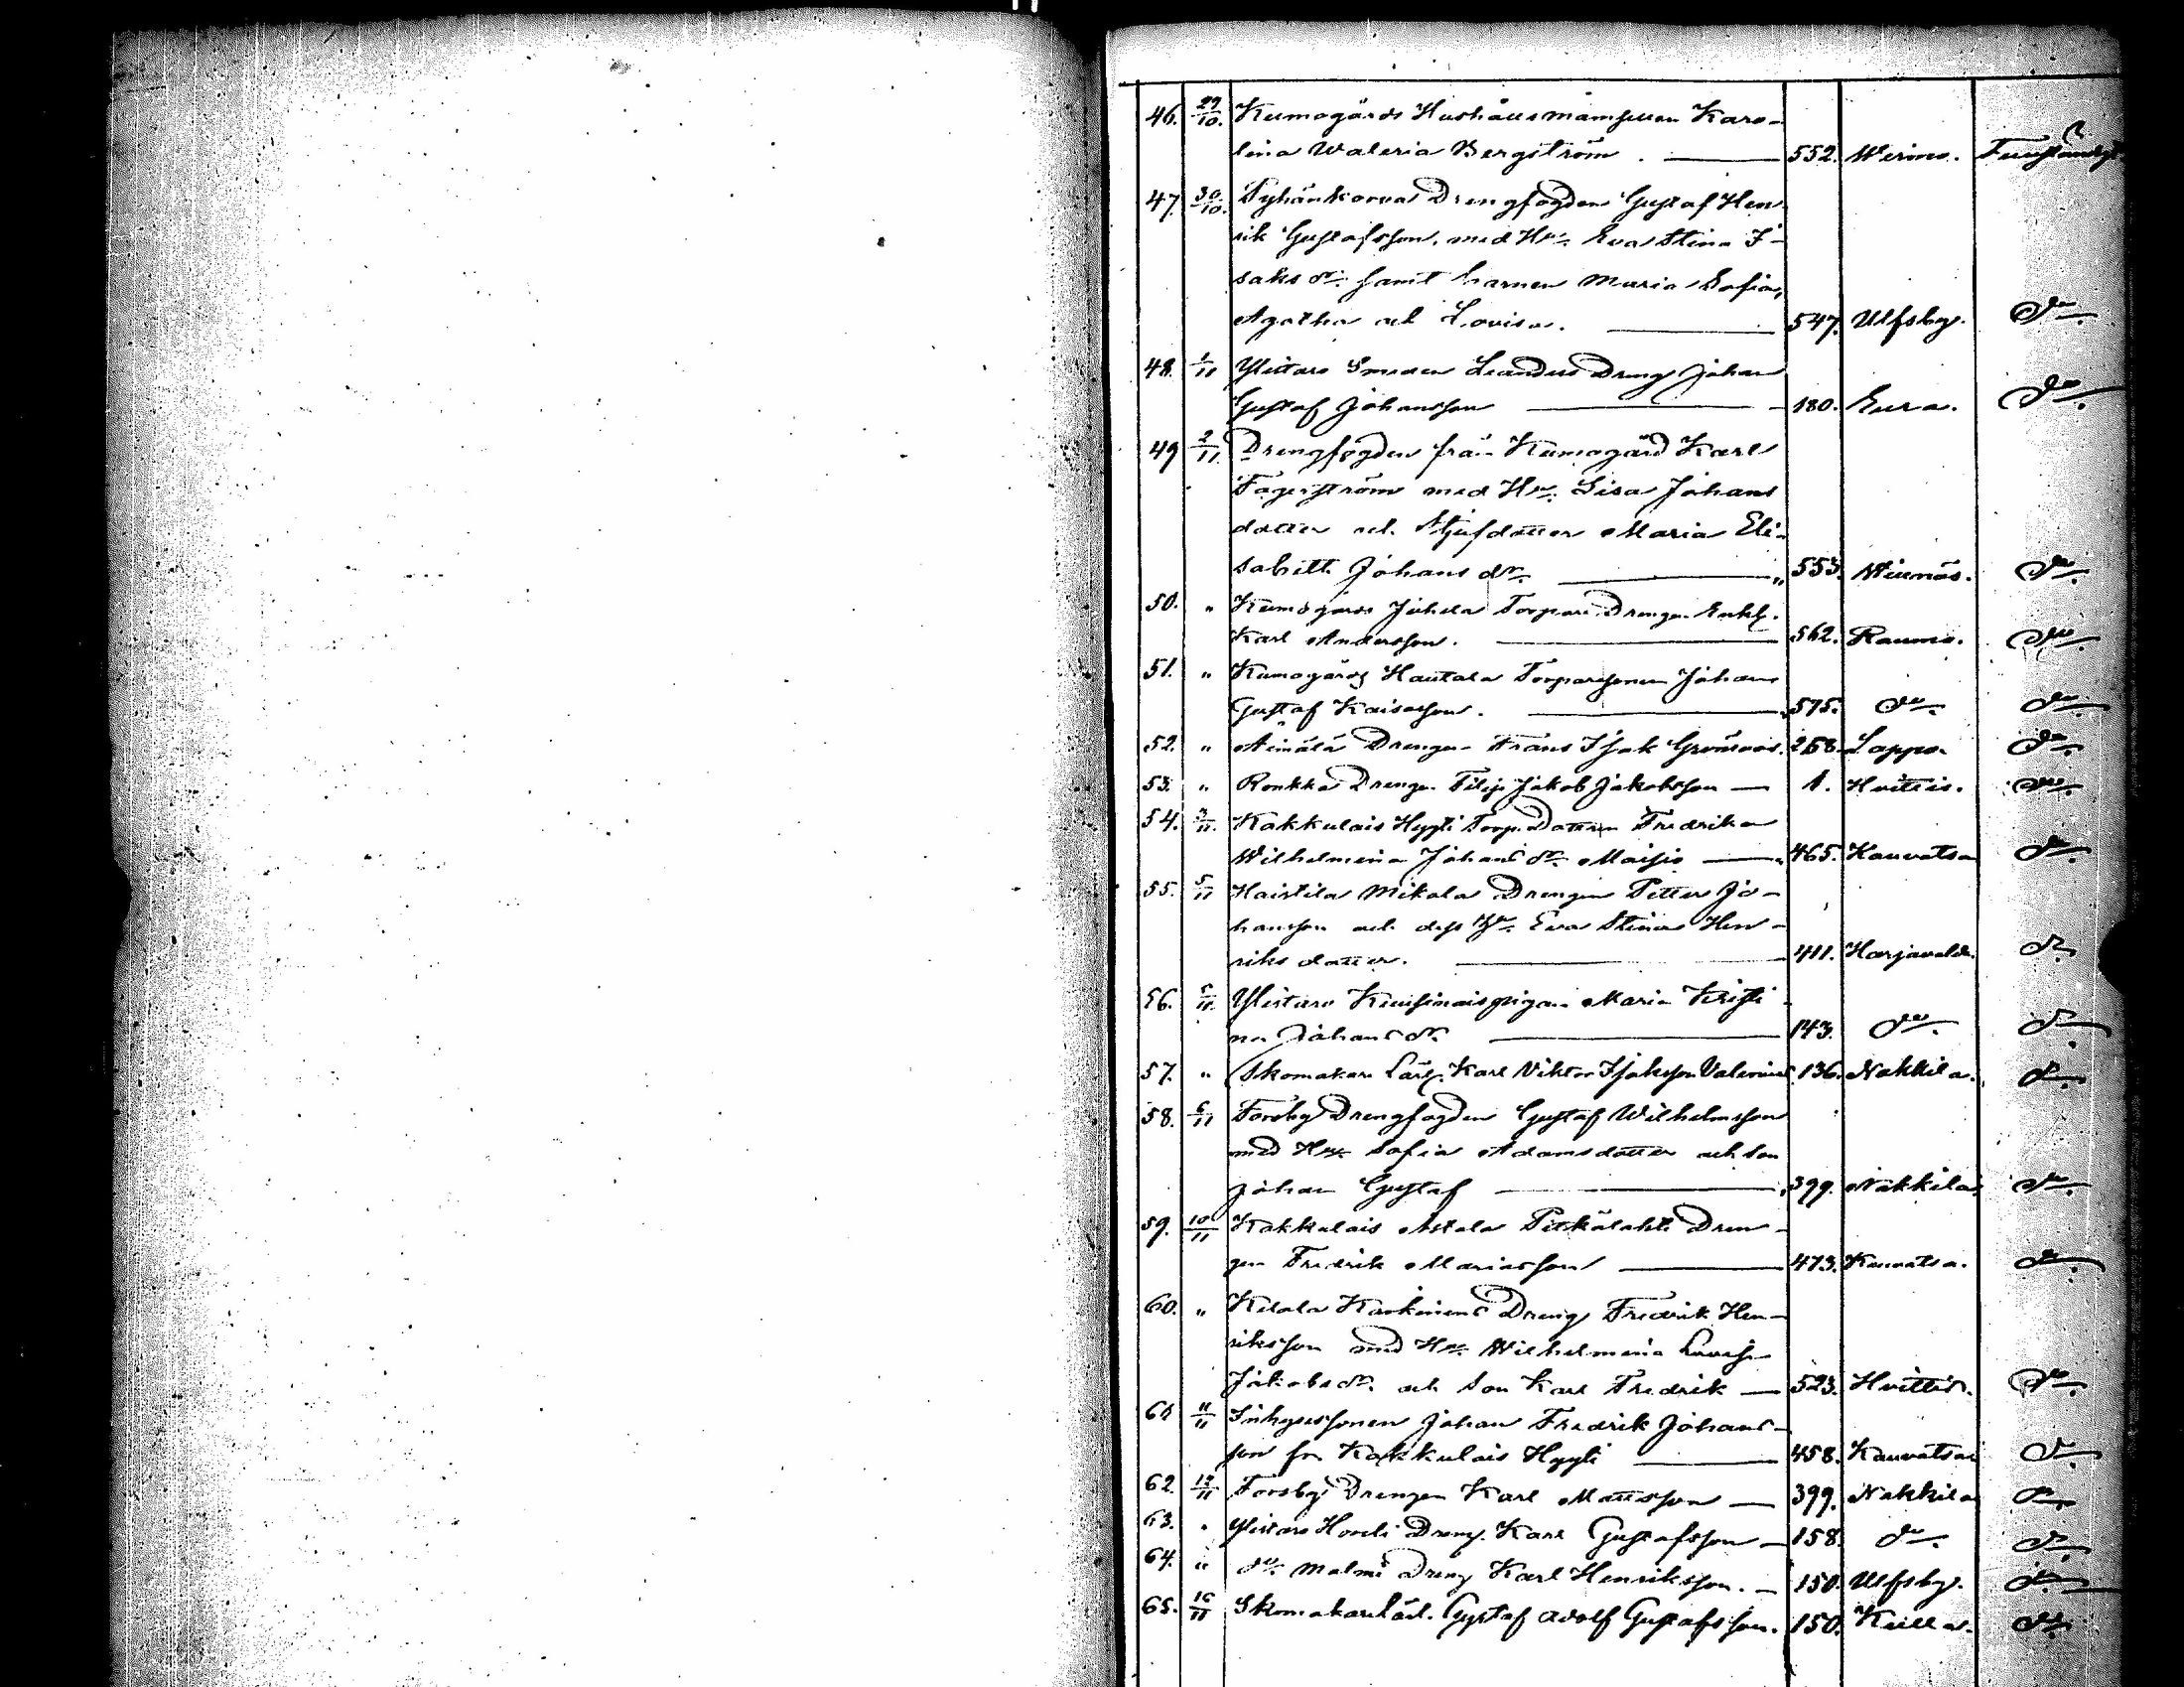 46. 29/10. Kumogårds Hushålls mamsellen Karo-
lina Valeria Bergström. 552. Wirmo.
47. 30/10. Drengfogden Gustaf Hen-
rik Gustafsson, med Hu. Eva Stina I-
saks dr. samt barnen Maria Sofia,
Agatha och Lovisa. 547. Ulfsby. do.
48. 1/11 Ylistaro Smeden Leanders Dreng Johan
Gustaf Johansson 180. Eura. do.
49 2/11. Drengfogden från Kumogård Karl
Fagerström med Hu. Lisa Johans
dotter och Styfdotter Maria Eli-
sabeth Johans dr. 553. do.
50. " Kumogårds Juhela Torpare Drengen Enkl.
Karl Andersson. 562. Raumo. do.
51. " Kumogårds Hautala Torparesonen Johan
Gustaf Kaisasson. 575. do. do.
52. " Äimälä Drengen Frans Isak Grönroos. 258. Lappo. do.
53. " Ronkka Drengen Filip Jakob Jakobsson 1. Hvittis. do.
54. 3/11. Kakkulais Hygli Torp. Dottren Fredrika
Wilhelmina Johans dr. 465. Kauvatsa do.
55. 5/11 Haistila Mikola Drengen Petter Jo-
hansson och dess Hu. Eva Stina Hen-
riks dotter. 411. Harjavalda. do.
56. 5/11. Ylistaro pigan Maria Kristi-
na Johans dr. 143. do. do.
57. " Skomakare Lärl. Karl Viktor Isaksson 136. Nakkila. do.
58. 6/11 Forsby Drengfogden Gustaf Wilhelmsson
med Hu. Sofia Adamsdotter och Son
Johan Gustaf 399. Nakkila do.
59. 10/11 Kakkulais Anttala Pitkälahti Dren-
gen Fredrik Mariasson 473. Kauvatsa. do.
60. " Kilala Dreng Fredrik Hen-
riksson med Hu. Wilhelmina Lovisa
Jakobs dr. och Son Karl Fredrik 523. Hvittis. do.
61 11/11 Inhysessonen Johan Fredrik Johans-
son fr. Kakkulais Hygli 458. Kauvatsa do.
62. 12/11 Forsby Drengen Karl Mattsson 399. Nakkila do.
63. " Ylistaro Hoveli Dreng. Karl Gustafsson 158. do. do.
64. " do. Malmi Dreng Karl Henriksson. 150. Ulfsby. do.
65. Skomakare Lärl. Gustaf Adolf Gustafsson. 150. Kiulla. do.